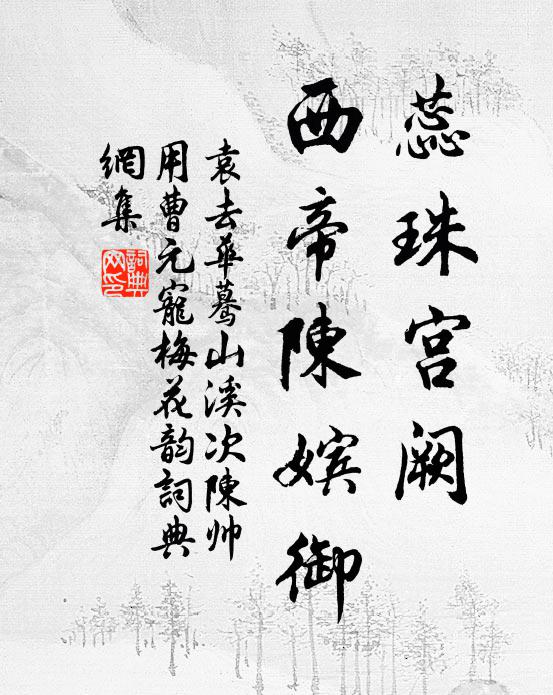 蕊珠宫阙
西帝陳嬪御
袁去華驀山溪次陳帅
用曹元寵梅花韵詞典
網集
詞典网印